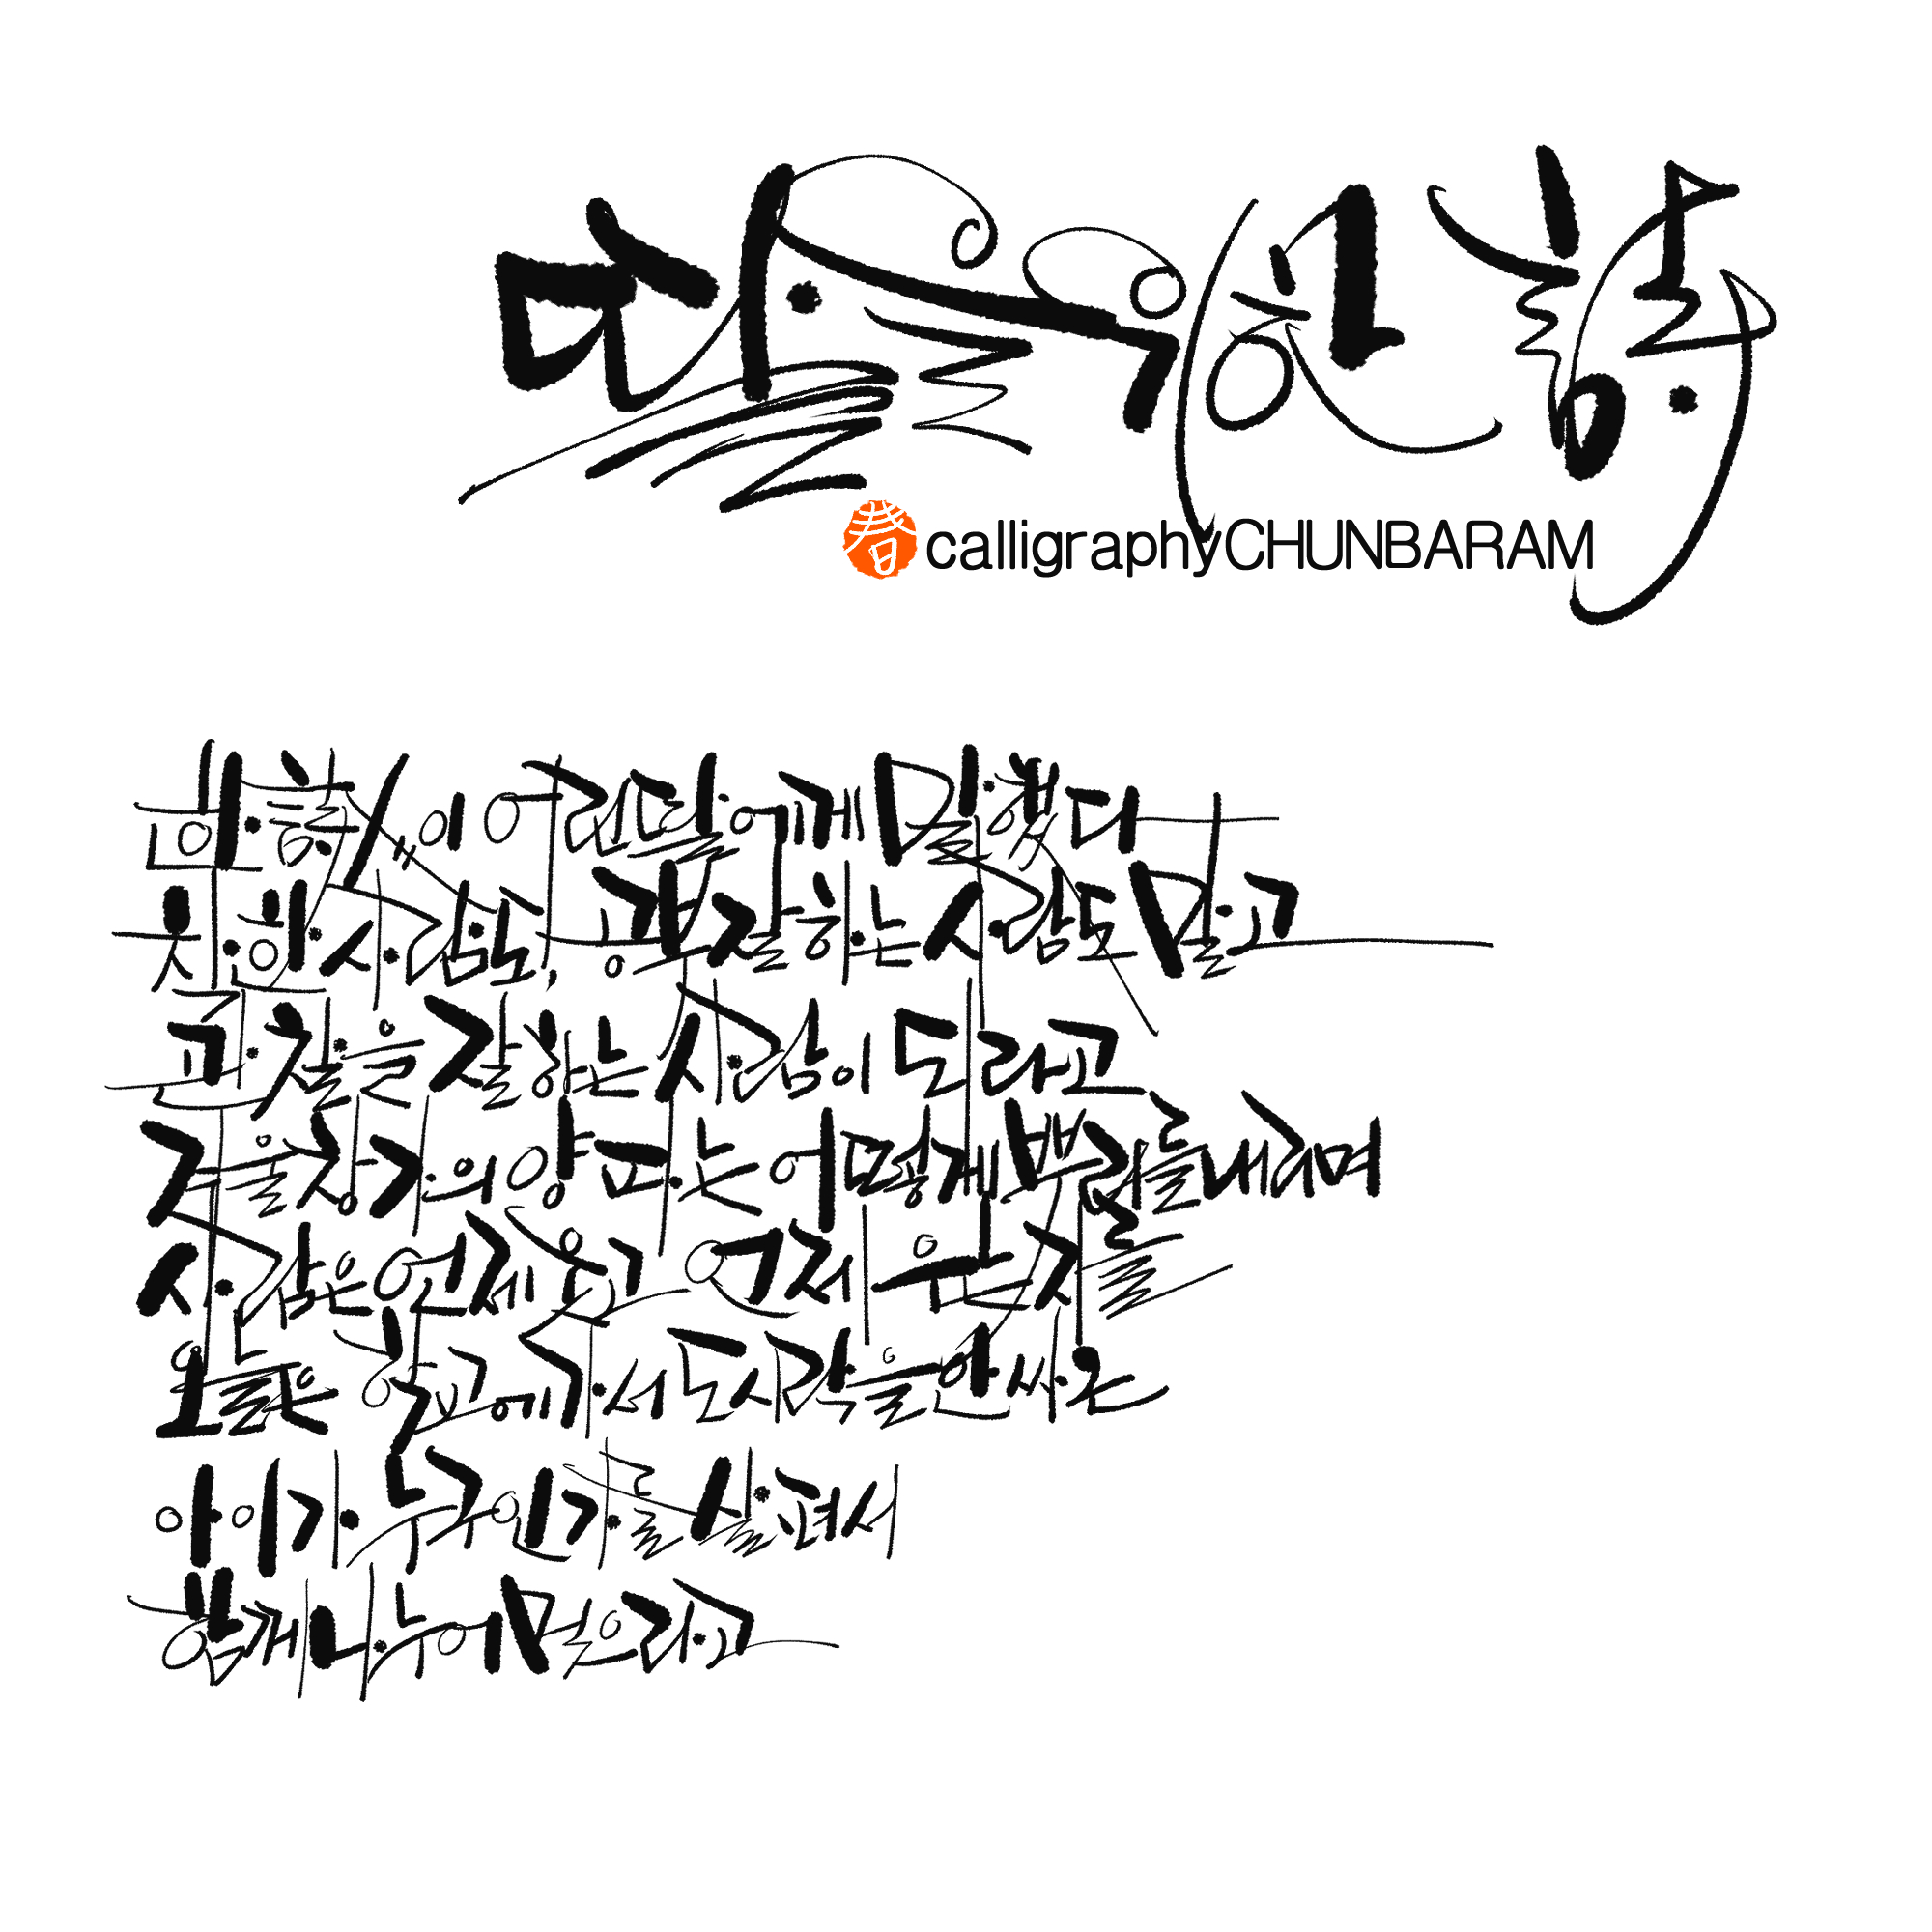 딸을 위한 詩
春 calligraphyCHUNBARAM
한 詩人이 어린 딸에게 말했다
착한 사람도, 공부 잘하는 사람도 말고
관찰을 잘하는 사람이 되라고
겨울 창가의 양파는 어떻게 뿌리를 내리며
사람은 언제 웃고 언제 우는지를
오늘은 학교에 가서 도시락을 안 싸온
아이가 누구인가를 살펴서
함께 나누어 먹으라고